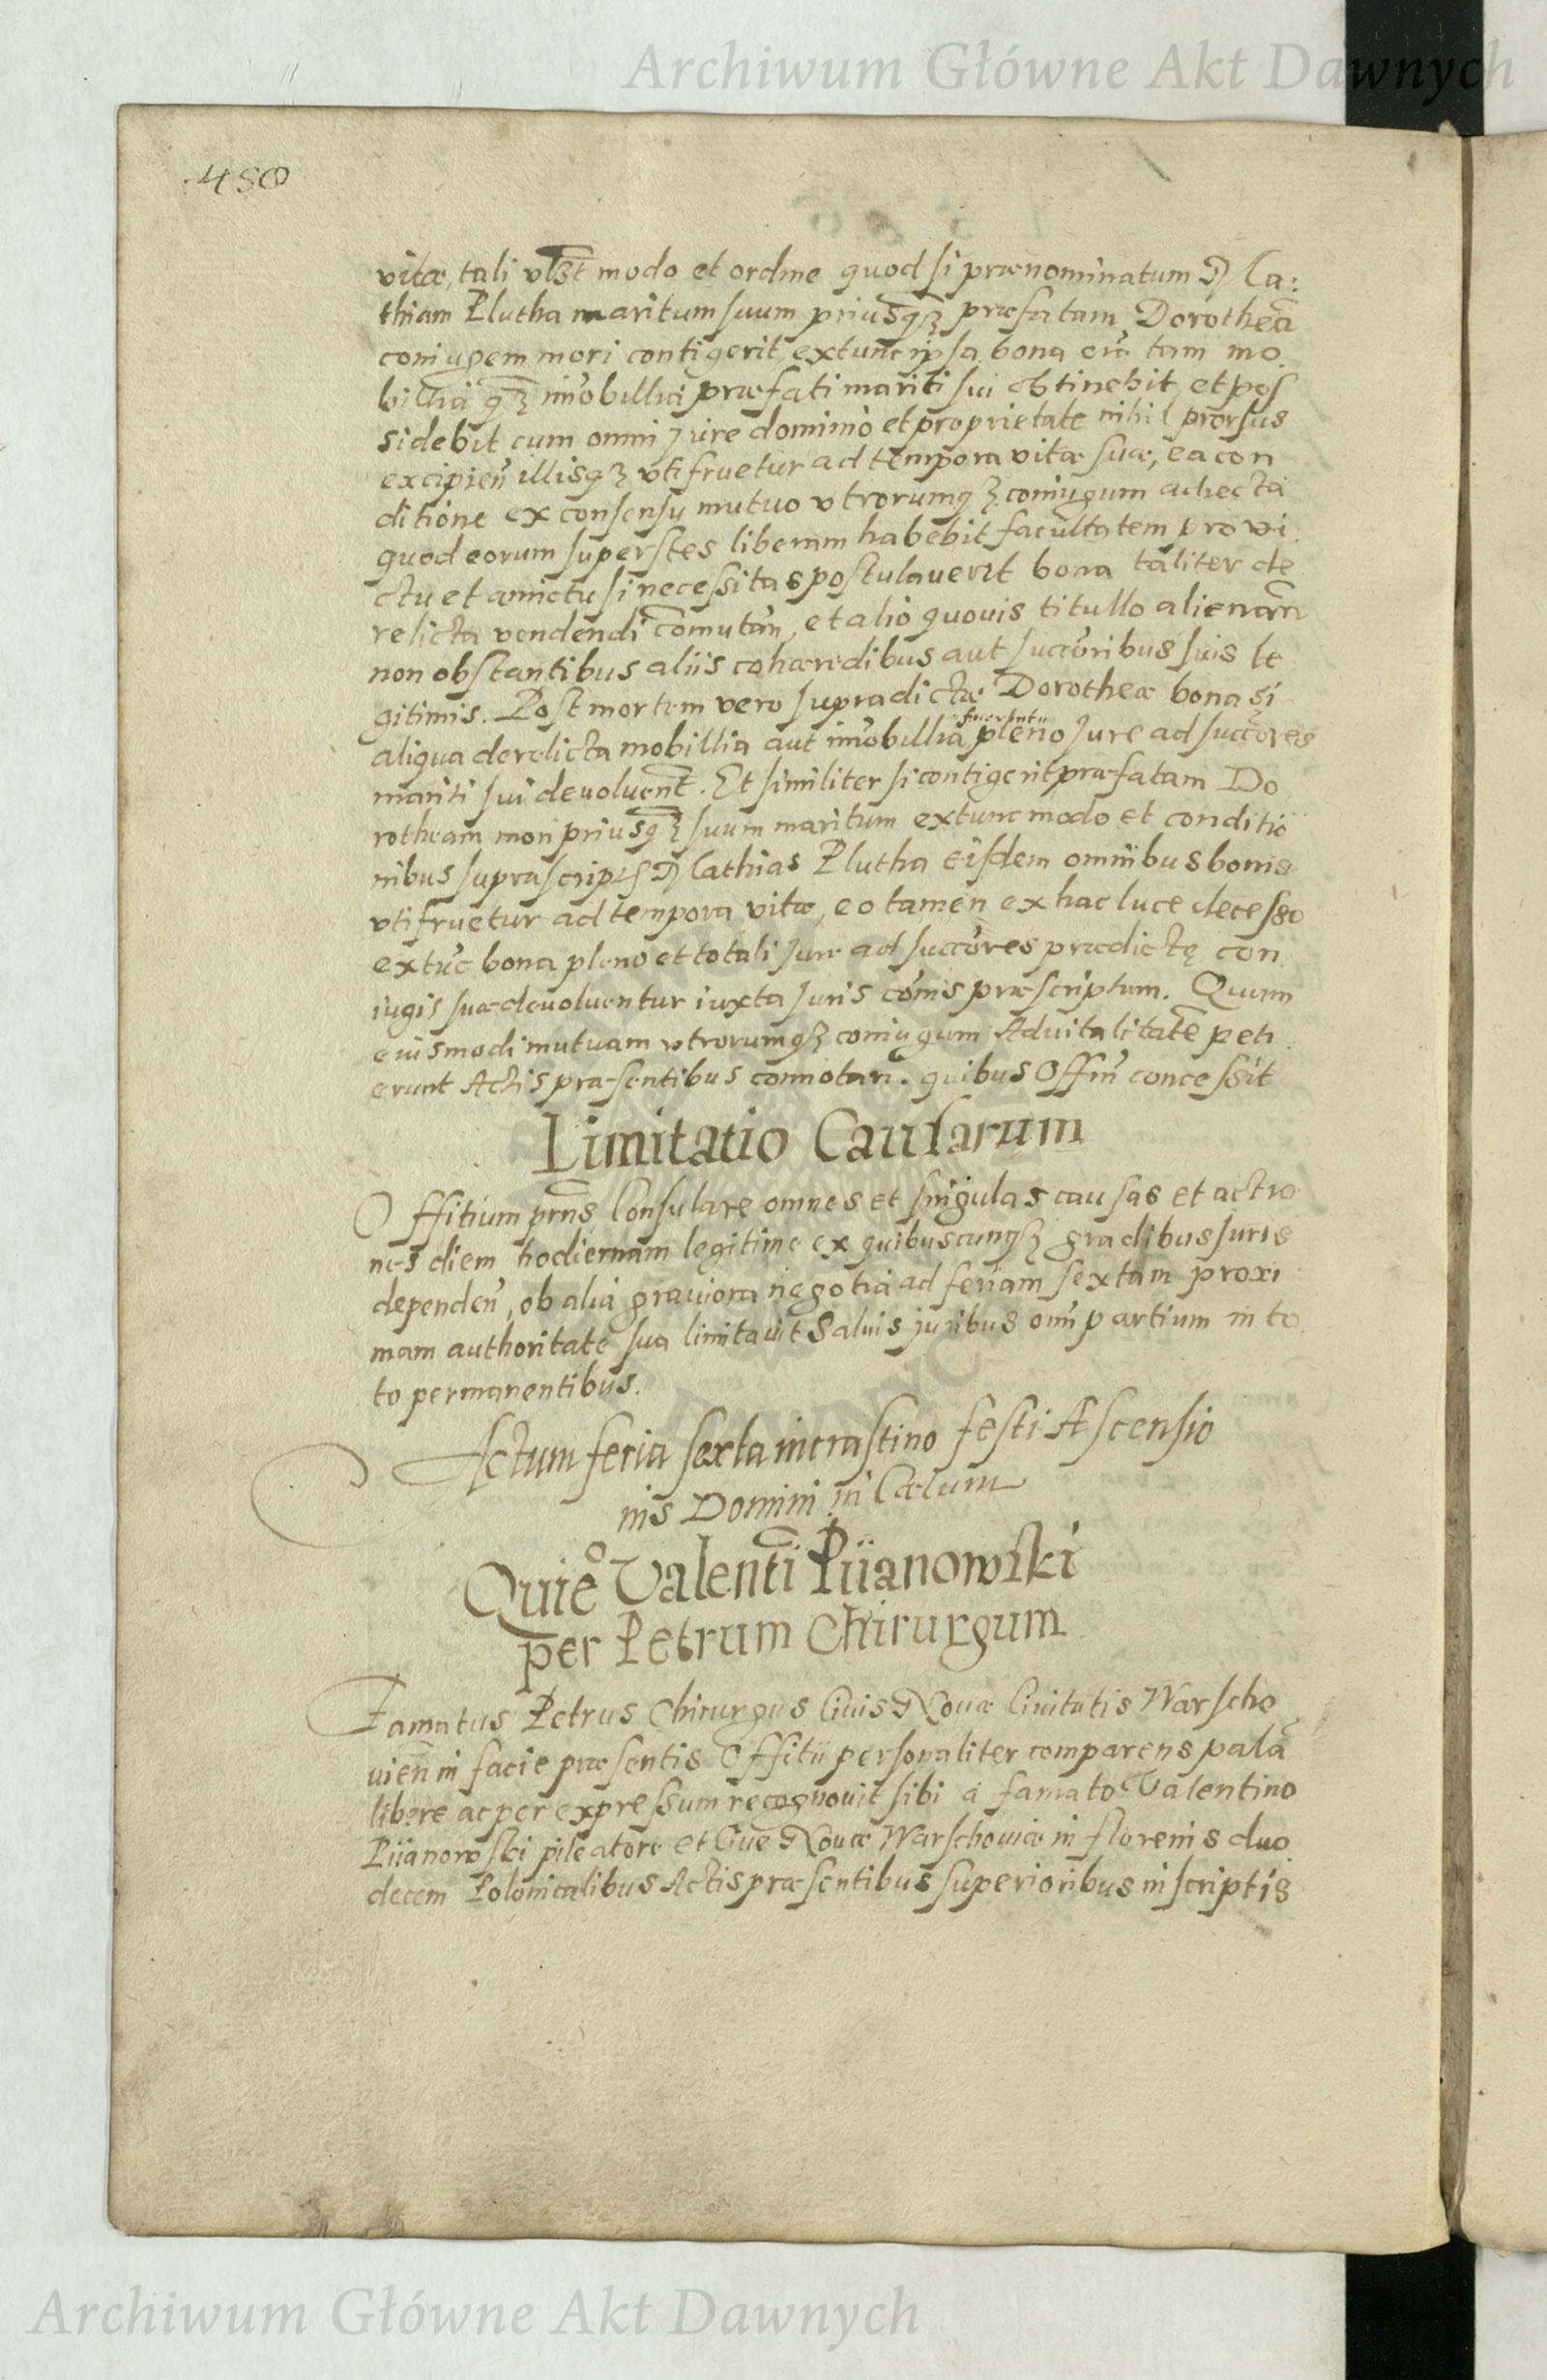 Archiwum Główne Akt Dawnych
480
vitæ, tali vlꝫt modo et ordine quod si prænominatum Ma:
thiam Plutha maritum suum priusqꝫ præfatam Dorotheā
coniugem mori contigerit, extunc ipsa bona oīa tam mo
billia qꝫ imobillia præfati mariti sui obtinebit, et pos
sidebit cum omni jure dominio et proprietate nihil prorsus
excipien̄ illisqꝫ vtifruetur ad tempora vitæ suæ, ea con
ditione ex consensu mutuo vtrorumqꝫ coniugum adiecta
quod eorum superstes liberam habebit facultatem pro vi
ctu et amictu si necessitas postulauerit bona taliter de
relicta vendendi comutan̄, et alio quouis titullo alienan̄
non obstantibus aliis cohæredibus aut succōribus suis le
gitimis. Post mortem vero supradictæ Dorotheæ bona si
fuerint
aliqua derelicta mobillia aut imobillia pleno Jure ad succōres
mariti sui deuoluent̄. Et similiter si contigerit præfatam Do
rotheam mori priusqꝫ suum maritum extunc modo et conditio
nibus suprascriptis Mathias Plutha eisdem omnibus bonis
vtifruetur ad tempora vitæ, eo tamen ex hac luce decesso
extūc bona pleno et totali Jure ad succōres prædictę con
iugis suæ deuoluentur iuxta Juris cōmis præscriptum. Quam
eiusmodi mutuam vtrorumqꝫ coniugum Aduitalitatē peti
erunt Actis præsentibus connotari. quibus Offm̄ concessit
Limitatio Causarum
Offitium prn̄s Consulare omnes et singulas causas et actio
nes diem hodiernam legitime ex quibuscunqꝫ gradibus Juris
dependen̄, ob alia grauiora negotia ad feriam sextam proxi
mam authoritate sua limitauit Saluis juribus om̄ partium in to
to permanentibus.
Actum feria sexta in crastino festi Ascensio
nis Domini in Cælum
Quieᵒ Valenti Piianowski
per Petrum Chirurgum
Famatus Petrus Chirurgus Ciuis Nouæ Ciuitatis Warscho
uien̄ in facie præsentis Offitii personaliter comparens palā
libere ac per expressum recognouit sibi a famato Valentino
Piianowski pileatore et Ciue Nouæ Warschouiæ in florenis duo
decem Polonicalibus Actis præsentibus superioribus inscriptis
Archiwum Główne Akt Dawnych